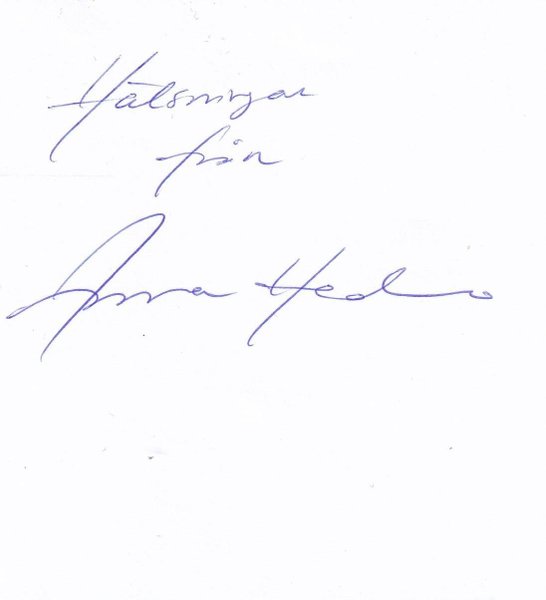 Hälsningar
från
Anna Hed